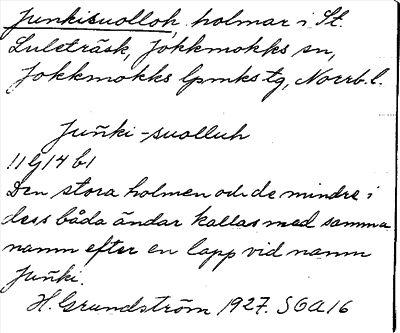 Junkisuolloh, holmar i St.
Luleträsk, Jokkmokks sn,
Jokkmokks lpmks tg, Norrb. l.
Juñki-suolluh
11 G 14 b 1
Den stora holmen och de mindre i
dess båda ändar kallas med samma
namn efter en lapp vid namn
Juñki.
H. Grundström 1927. SOA 16